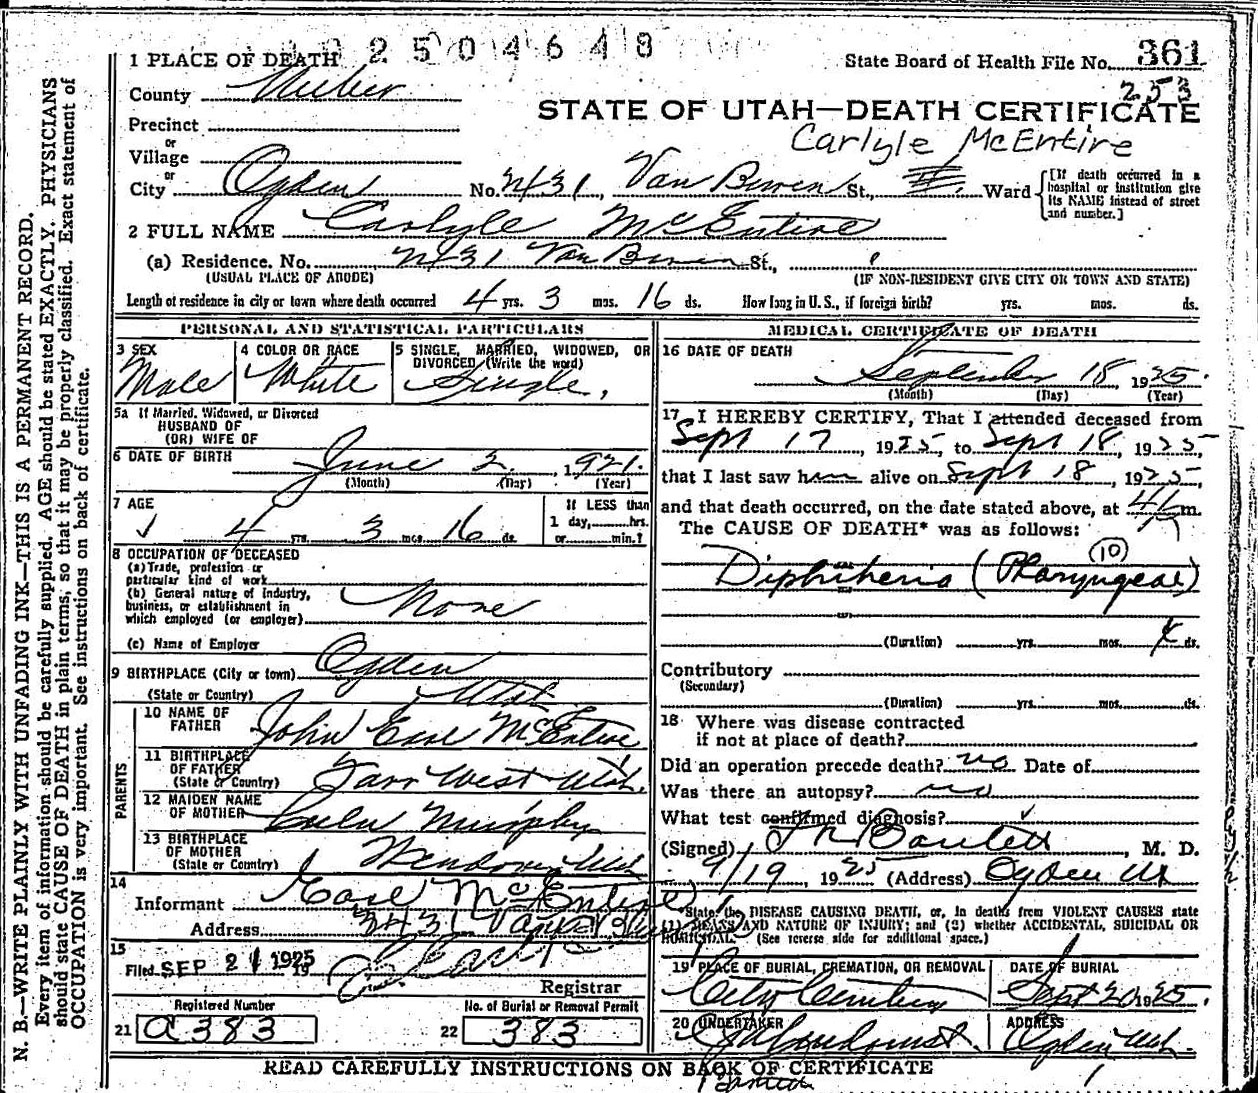 2504648
1 PLACE OF DEATH
State Board of Health File No. 361
253
County Weber
STATE OF UTAH—DEATH CERTIFICATE
Precinct
Carlyle McEntire
or
Village
or
City Ogden No. 2431, Van Buren St., Ward
[If death occurred in a hospital or institution give its NAME instead of street and number.]
2 FULL NAME Carlyle McEntire
(a) Residence. No. 2431 Van Buren St.,
(USUAL PLACE OF ABODE) (IF NON-RESIDENT GIVE CITY OR TOWN AND STATE)
Length of residence in city or town where death occurred 4 yrs. 3 mos. 16 ds. How long in U. S., if foreign birth? yrs. mos. ds.
PERSONAL AND STATISTICAL PARTICULARS
3 SEX
Male
4 COLOR OR RACE
White
5 SINGLE, MARRIED, WIDOWED, OR
DIVORCED (Write the word)
Single,
5a If Married, Widowed, or Divorced
HUSBAND OF
(OR) WIFE OF
6 DATE OF BIRTH June 2, 1921.
(Month) (Day) (Year)
7 AGE
4 yrs. 3 mos. 16 ds.
If LESS than
1 day, hrs.
or min.?
8 OCCUPATION OF DECEASED
(a) Trade, profession or
particular kind of work
(b) General nature of industry,
business, or establishment in
which employed (or employer) None
(c) Name of Employer
9 BIRTHPLACE (City or town) Ogden
(State or Country) Utah
PARENTS
10 NAME OF
FATHER John Earl McEntire
11 BIRTHPLACE
OF FATHER
(State or Country) Farr West Utah.
12 MAIDEN NAME
OF MOTHER Murphy
13 BIRTHPLACE
OF MOTHER
(State or Country) Utah
14
Informant Earl McEntire
Address 2431 Van Buren
15
Filed SEP 21 1925
Registrar
Registered Number
21 a383
No. of Burial or Removal Permit
22 383
MEDICAL CERTIFICATE OF DEATH
16 DATE OF DEATH
September 18, 1925.
(Month) (Day) (Year)
17 I HEREBY CERTIFY, That I attended deceased from
Sept 17, 1925, to Sept 18, 1925,
that I last saw him alive on Sept 18, 1925,
and that death occurred, on the date stated above, at 4 m.
The CAUSE OF DEATH* was as follows:
10
Diphtheria (Pharyngeal)
(Duration) yrs. mos. 4 ds.
Contributory
(Secondary)
(Duration) yrs. mos. ds.
18 Where was disease contracted
if not at place of death?
Did an operation precede death? no Date of
Was there an autopsy? no
What test confirmed diagnosis?
(Signed) Bartlett, M. D.
9/19, 1925 (Address) Ogden Ut
*State the DISEASE CAUSING DEATH, or, in deaths from VIOLENT CAUSES state
(1) MEANS AND NATURE OF INJURY; and (2) whether ACCIDENTAL, SUICIDAL OR
HOMICIDAL. (See reverse side for additional space.)
19 PLACE OF BURIAL, CREMATION, OR REMOVAL
City Cemetery
DATE OF BURIAL
Sept 20 1925.
20 UNDERTAKER
ADDRESS
Ogden Utah.
READ CAREFULLY INSTRUCTIONS ON BACK OF CERTIFICATE
N. B.—WRITE PLAINLY WITH UNFADING INK—THIS IS A PERMANENT RECORD.
Every item of information should be carefully supplied. AGE should be stated EXACTLY. PHYSICIANS
should state CAUSE OF DEATH in plain terms, so that it may be properly classified. Exact statement of
OCCUPATION is very important. See instructions on back of certificate.